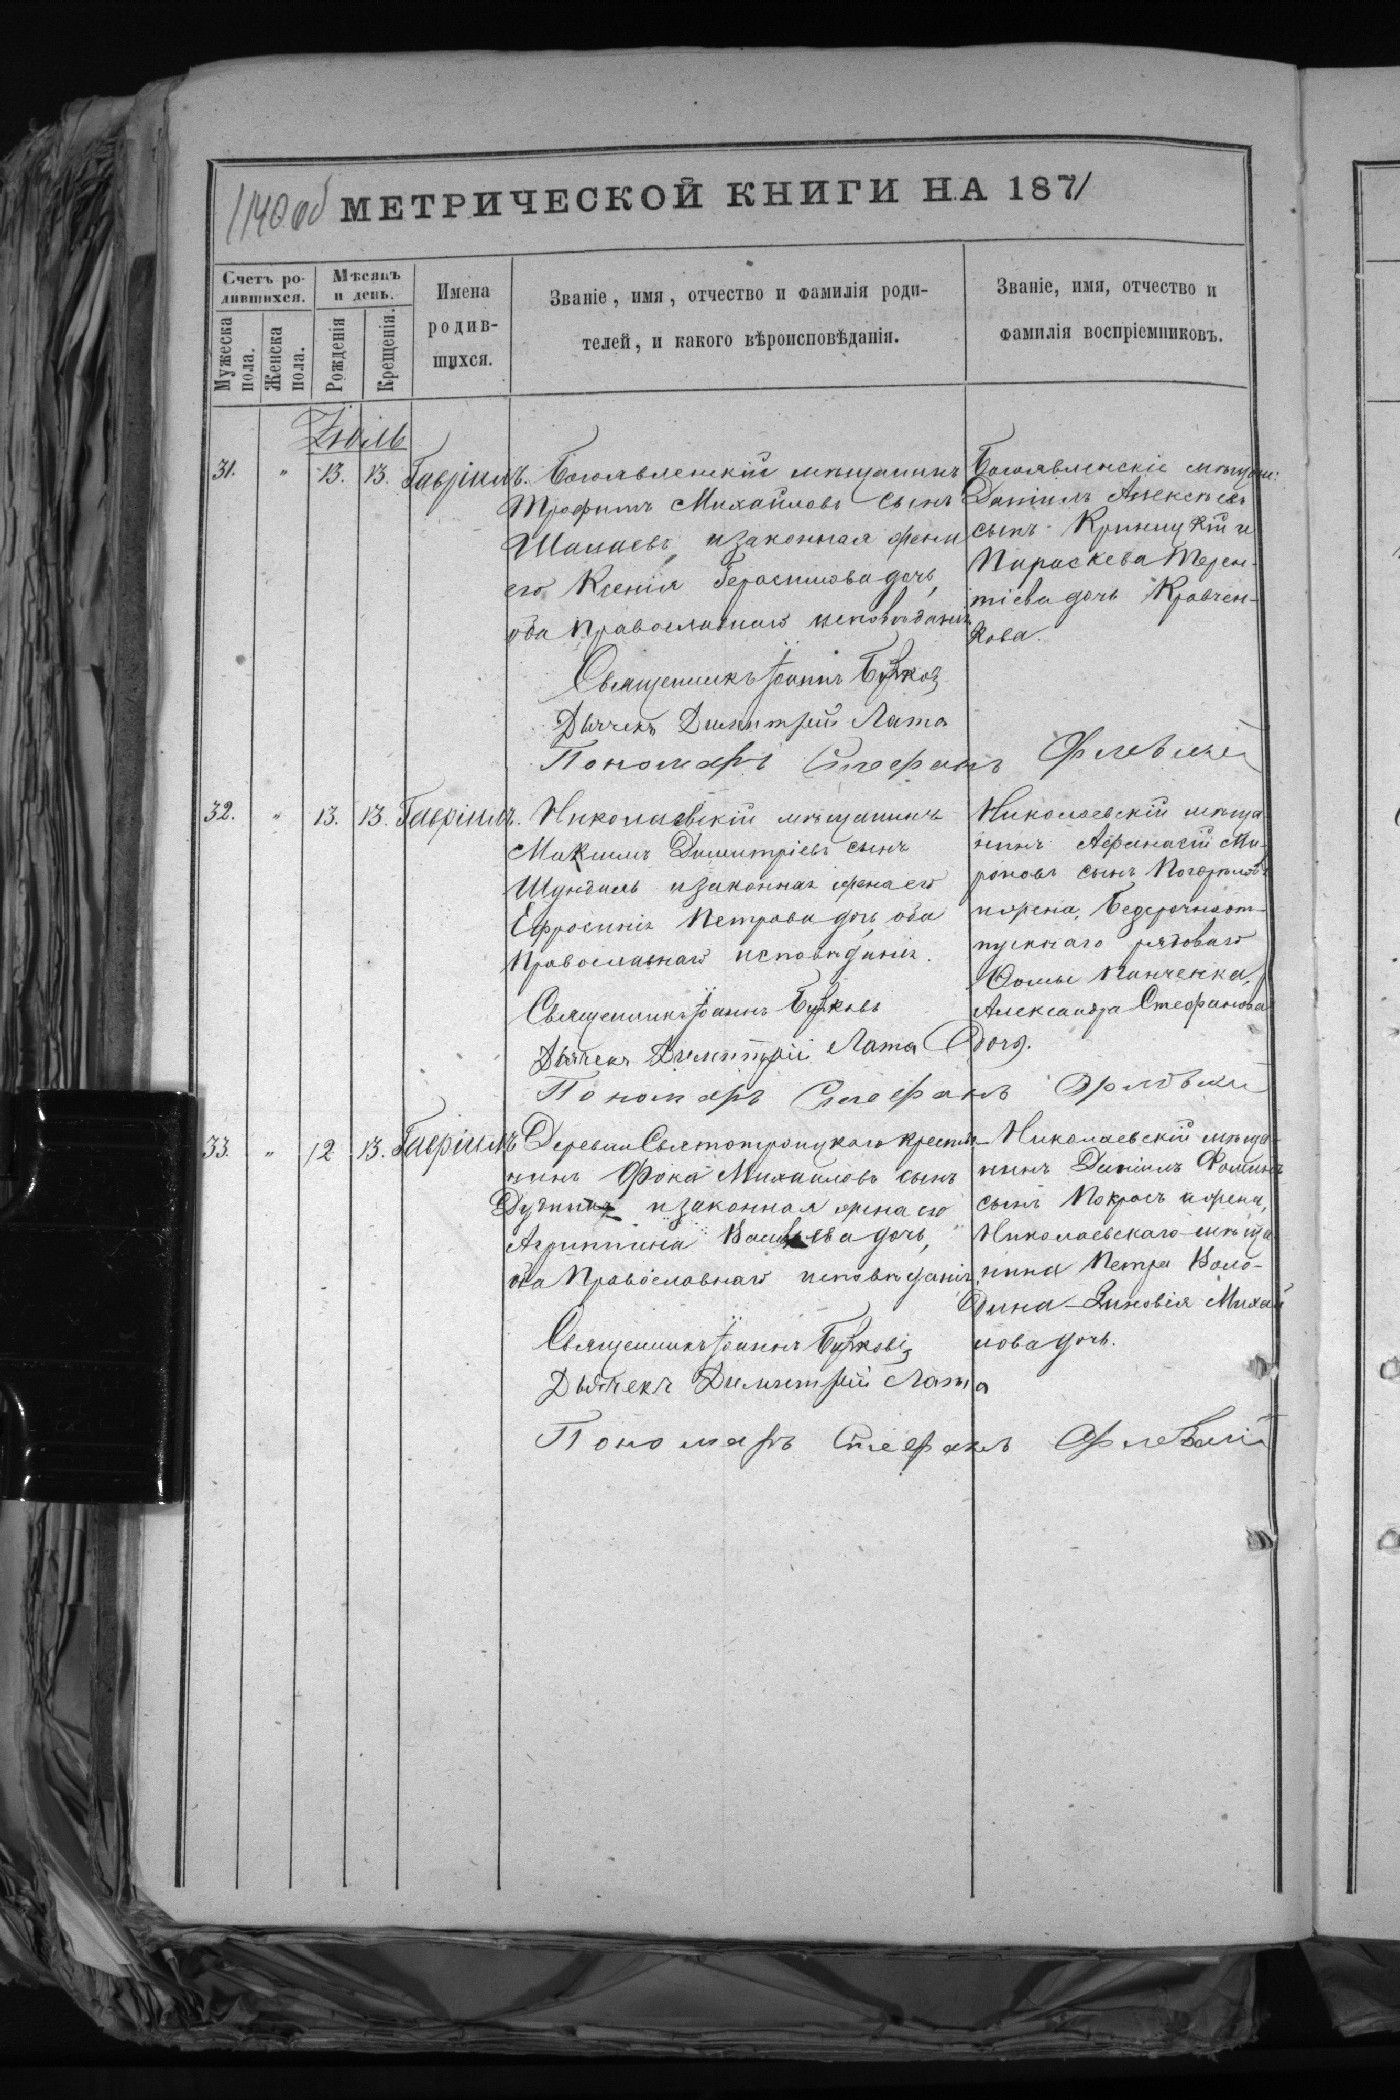 1140 об МЕТРИЧЕСКОЙ КНИГИ НА 1871
Счетъ родившихся.
Мѣсяцъ и день.
Имена родившихся.
Званіе, имя, отчество и фамилія роди-
телей, и какого вѣроисповѣданія.
Званіе, имя, отчество и
фамилія воспріемниковъ.
Мужеска пола.
Женска пола.
Рожденія
Крещенія.
Іюль
31. " 13. 13. Гавріилъ.
Богоявленскій мѣщанинъ
Трофимъ Михайловъ сынъ
и законная жена
его Ксенія Герасимова дочь,
оба православнаго исповѣданія
Священникъ Іоаннъ
Дьячекъ Димитрій Лата
Пономарь Стефанъ
Богоявленскіе мѣщане:
Даніилъ Алексѣевъ
сынъ Криницкій и
Параскева Терен-
тіева дочь Кравчен-
кова.
32. " 13. 13. Гавріилъ.
Николаевскій мѣщанинъ
Максимъ Димитріевъ сынъ
и законная жена его
Ефросинія Петрова дочь, оба
православнаго исповѣданія.
Священникъ Іоаннъ
Дьячекъ Димитрій Лата
Пономарь Стефанъ
Николаевскій мѣща
нинъ Афанасій Ми-
роновъ сынъ
и жена, безсрочноот-
пускнаго рядоваго
Фомы Панченка,
Александра Стефанова
дочь.
33. " 12 13. Гавріилъ
Деревни Святотроицкаго крестья-
нинъ Фока Михайловъ сынъ
и законная жена его
Агриппина Васильева дочь,
оба православнаго исповѣданія
Священникъ Іоаннъ
Дьячекъ Димитрій Лата
Пономарь Стефанъ
Николаевскій мѣща-
нинъ Даніилъ Фоминъ
сынъ Покрасъ и жена,
Николаевскаго мѣща
нина Петра Воло-
дина – Зиновія Михай
лова дочь.